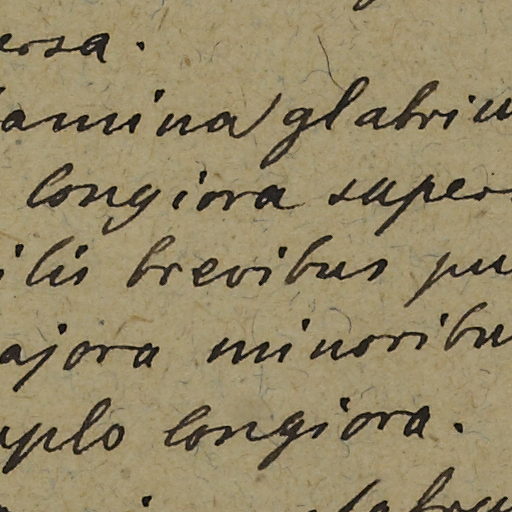 ersa.
amina glabriu
longiora super
ilis brevibus pu
ajora minoribu
uplo longiora.